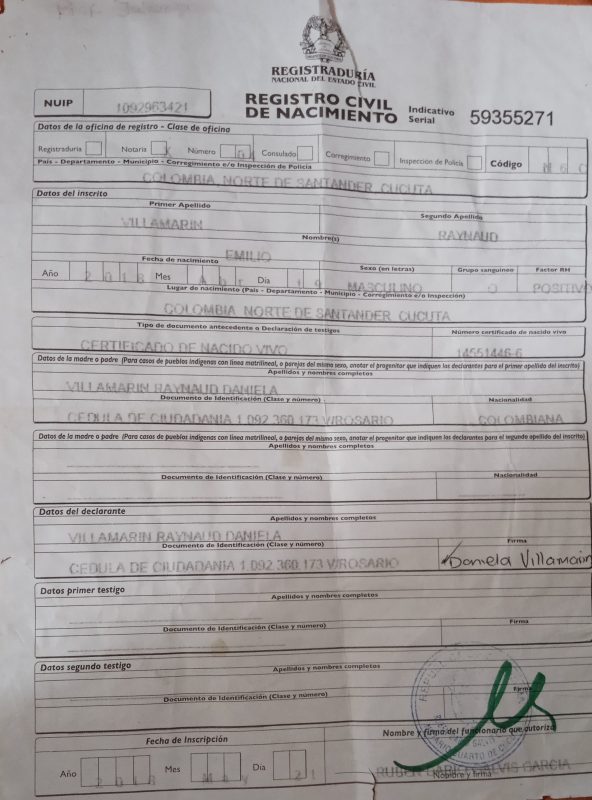 REGISTRADURÍA
NACIONAL DEL ESTADO CIVIL
NUIP
1092963421
REGISTRO CIVIL
DE NACIMIENTO
Indicativo
Serial
59355271
Datos de la oficina de registro - Clase de oficina
Registraduría
Notaría
X
Número
Consulado
Corregimiento
Inspección de Policía
Código
País - Departamento - Municipio - Corregimiento e/o Inspección de Policía
COLOMBIA NORTE DE SANTANDER CUCUTA
Datos del inscrito
Primer Apellido
Segundo Apellido
VILLAMARIN
RAYNAUD
Nombre(s)
EMILIO
Fecha de nacimiento
Sexo (en letras)
Grupo sanguíneo
Factor RH
Año
2018
Mes
Día
19
MASCULINO
O
POSITIVO
Lugar de nacimiento (País - Departamento - Municipio - Corregimiento e/o Inspección)
COLOMBIA NORTE DE SANTANDER CUCUTA
Tipo de documento antecedente o Declaración de testigos
Número certificado de nacido vivo
CERTIFICADO DE NACIDO VIVO
14551446-6
Datos de la madre o padre (Para casos de pueblos indígenas con línea matrilineal, o parejas del mismo sexo, anotar el progenitor que indiquen los declarantes para el primer apellido del inscrito)
Apellidos y nombres completos
VILLAMARIN RAYNAUD DANIELA
Documento de Identificación (Clase y número)
Nacionalidad
CEDULA DE CIUDADANIA 1.092.360.173 V/ROSARIO
COLOMBIANA
Datos de la madre o padre (Para casos de pueblos indígenas con línea matrilineal, o parejas del mismo sexo, anotar el progenitor que indiquen los declarantes para el segundo apellido del inscrito)
Apellidos y nombres completos
Documento de Identificación (Clase y número)
Nacionalidad
Datos del declarante
Apellidos y nombres completos
VILLAMARIN RAYNAUD DANIELA
Documento de Identificación (Clase y número)
Firma
CEDULA DE CIUDADANIA 1.092.360.173 V/ROSARIO
Daniela Villamarin
Datos primer testigo
Apellidos y nombres completos
Documento de Identificación (Clase y número)
Firma
Datos segundo testigo
Apellidos y nombres completos
Documento de Identificación (Clase y número)
Firma
Fecha de Inscripción
Nombre y firma del funcionario que autoriza
Año
2018
Mes
Día
21
GARCIA
Nombre y firma